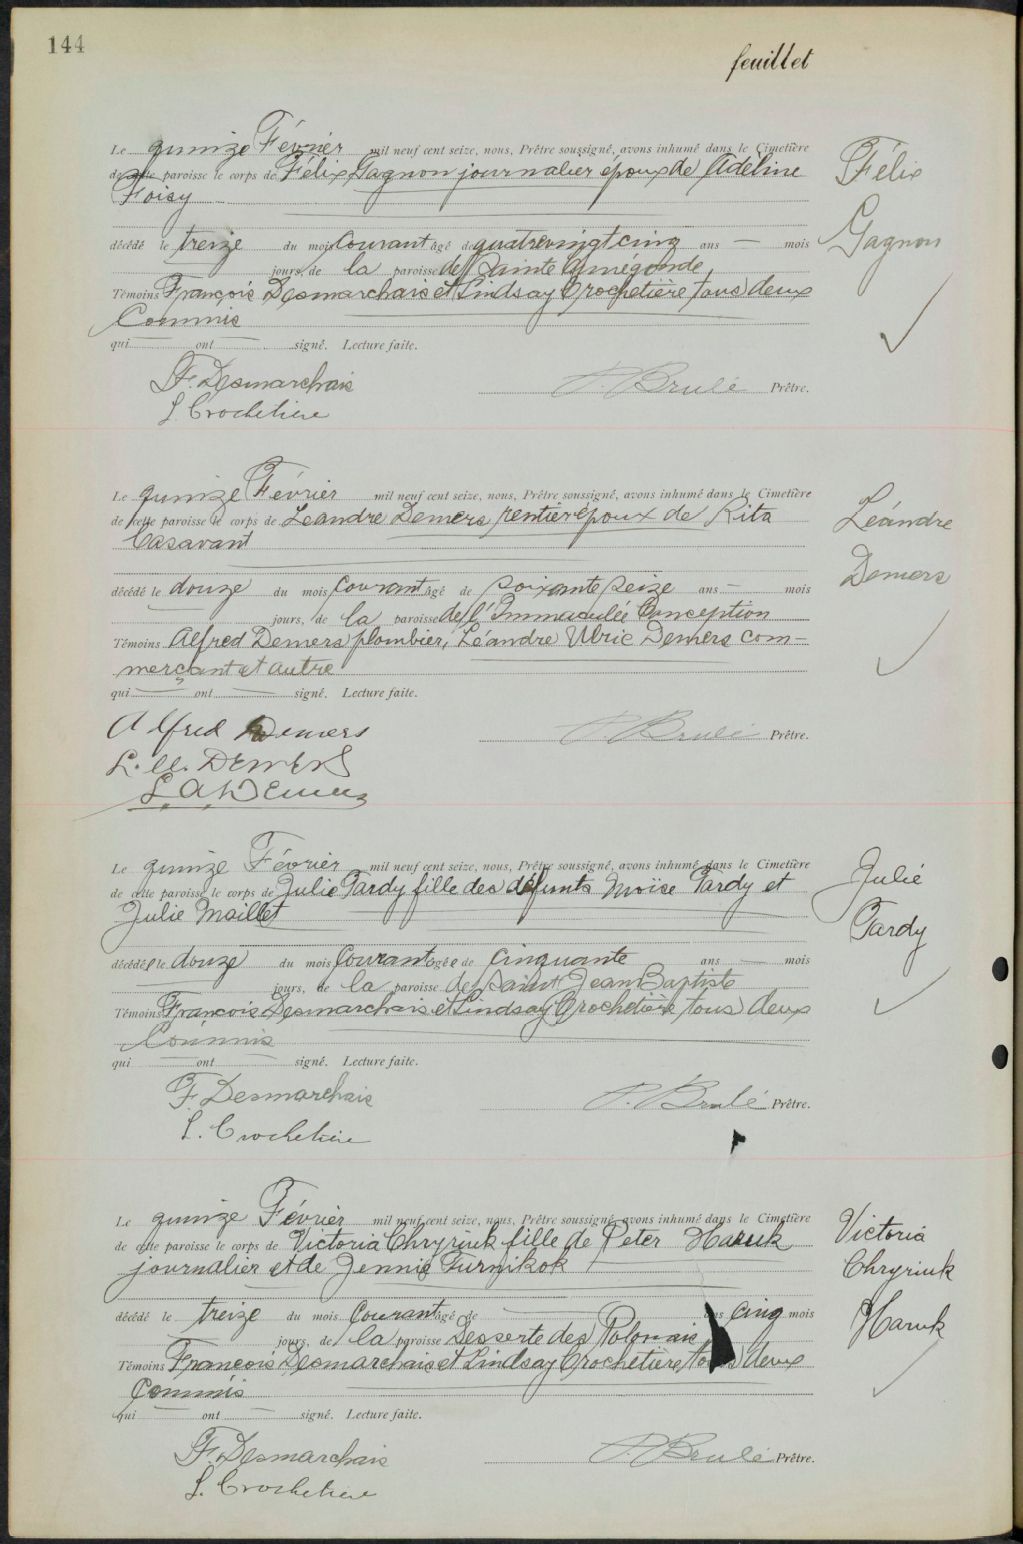 144
feuillet
Le quinze Février mil neuf cent seize, nous, Prêtre soussigné, avons inhumé dans le Cimetière
de cette paroisse le corps de Félix Gagnon journalier époux de Adéline
Foisy
décédé le treize du mois courant âgé de quatrevingtcinq ans — mois
jours, de la paroisse de Sainte Cunégonde
Témoins François Desmarchais et Lindsay Crochetière tous deux
Commis
qui — ont — signé. Lecture faite.
F. Desmarchais
P. Brulé Prêtre.
L. Crochetière
Félix
Gagnon
Le quinze Février mil neuf cent seize, nous, Prêtre soussigné, avons inhumé dans le Cimetière
de cette paroisse le corps de Léandre Demers rentier époux de Rita
Casavant
décédé le douze du mois courant âgé de soixante seize ans — mois
jours, de la paroisse de l'Immaculée Conception
Témoins Alfred Demers plombier, Léandre Ulric Demers com-
merçant et autre
qui — ont — signé. Lecture faite.
Alfred Demers
P. Brulé Prêtre.
L. U. Demers
L. A. Demers
Léandre
Demers
Le quinze Février mil neuf cent seize, nous, Prêtre soussigné, avons inhumé dans le Cimetière
de cette paroisse le corps de Julie Tardy fille des défunts Moïse Tardy et
Julie Maillet
décédée le douze du mois courant âgée de cinquante ans — mois
jours, de la paroisse de Saint Jean Baptiste
Témoins François Desmarchais et Lindsay Crochetière tous deux
Commis
qui — ont — signé. Lecture faite.
F. Desmarchais
P. Brulé Prêtre.
L. Crochetière
Julie
Tardy
Le quinze Février mil neuf cent seize, nous, Prêtre soussigné, avons inhumé dans le Cimetière
de cette paroisse le corps de Victoria Chryriuk fille de Peter Haruk
journalier et de Jennie Turnikok
décédé le treize du mois courant âgé de — ans cinq mois
jours, de la paroisse Desserte des Polonais
Témoins François Desmarchais et Lindsay Crochetière tous deux
Commis
qui — ont — signé. Lecture faite.
F. Desmarchais
P. Brulé Prêtre.
L. Crochetière
Victoria
Chryriuk
Haruk